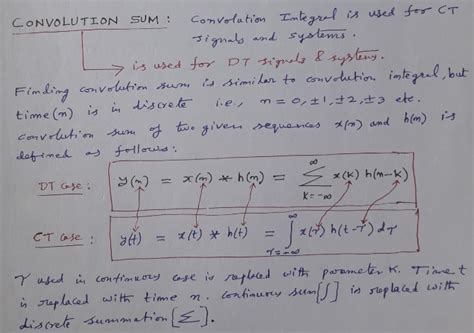 CONVOLUTION SUM : Convolution Integral is used for CT
signals and systems.
is used for DT signals & systems.
Finding convolution sum is similar to convolution integral, but
time (n) is in discrete i.e., n = 0, ±1, ±2, ±3 etc.
convolution sum of two given sequences x(n) and h(n) is
defined as follows:
DT case : y(n) = x(n) * h(n) = ∑_{K=-∞}^{∞} x(K) h(n-K)
CT case : y(t) = x(t) * h(t) = ∫_{τ=-∞}^{∞} x(τ) h(t-τ) dτ
τ used in continuous case is replaced with parameter K. Time t
is replaced with time n. continuous sum [∫] is replaced with
discrete summation [∑].